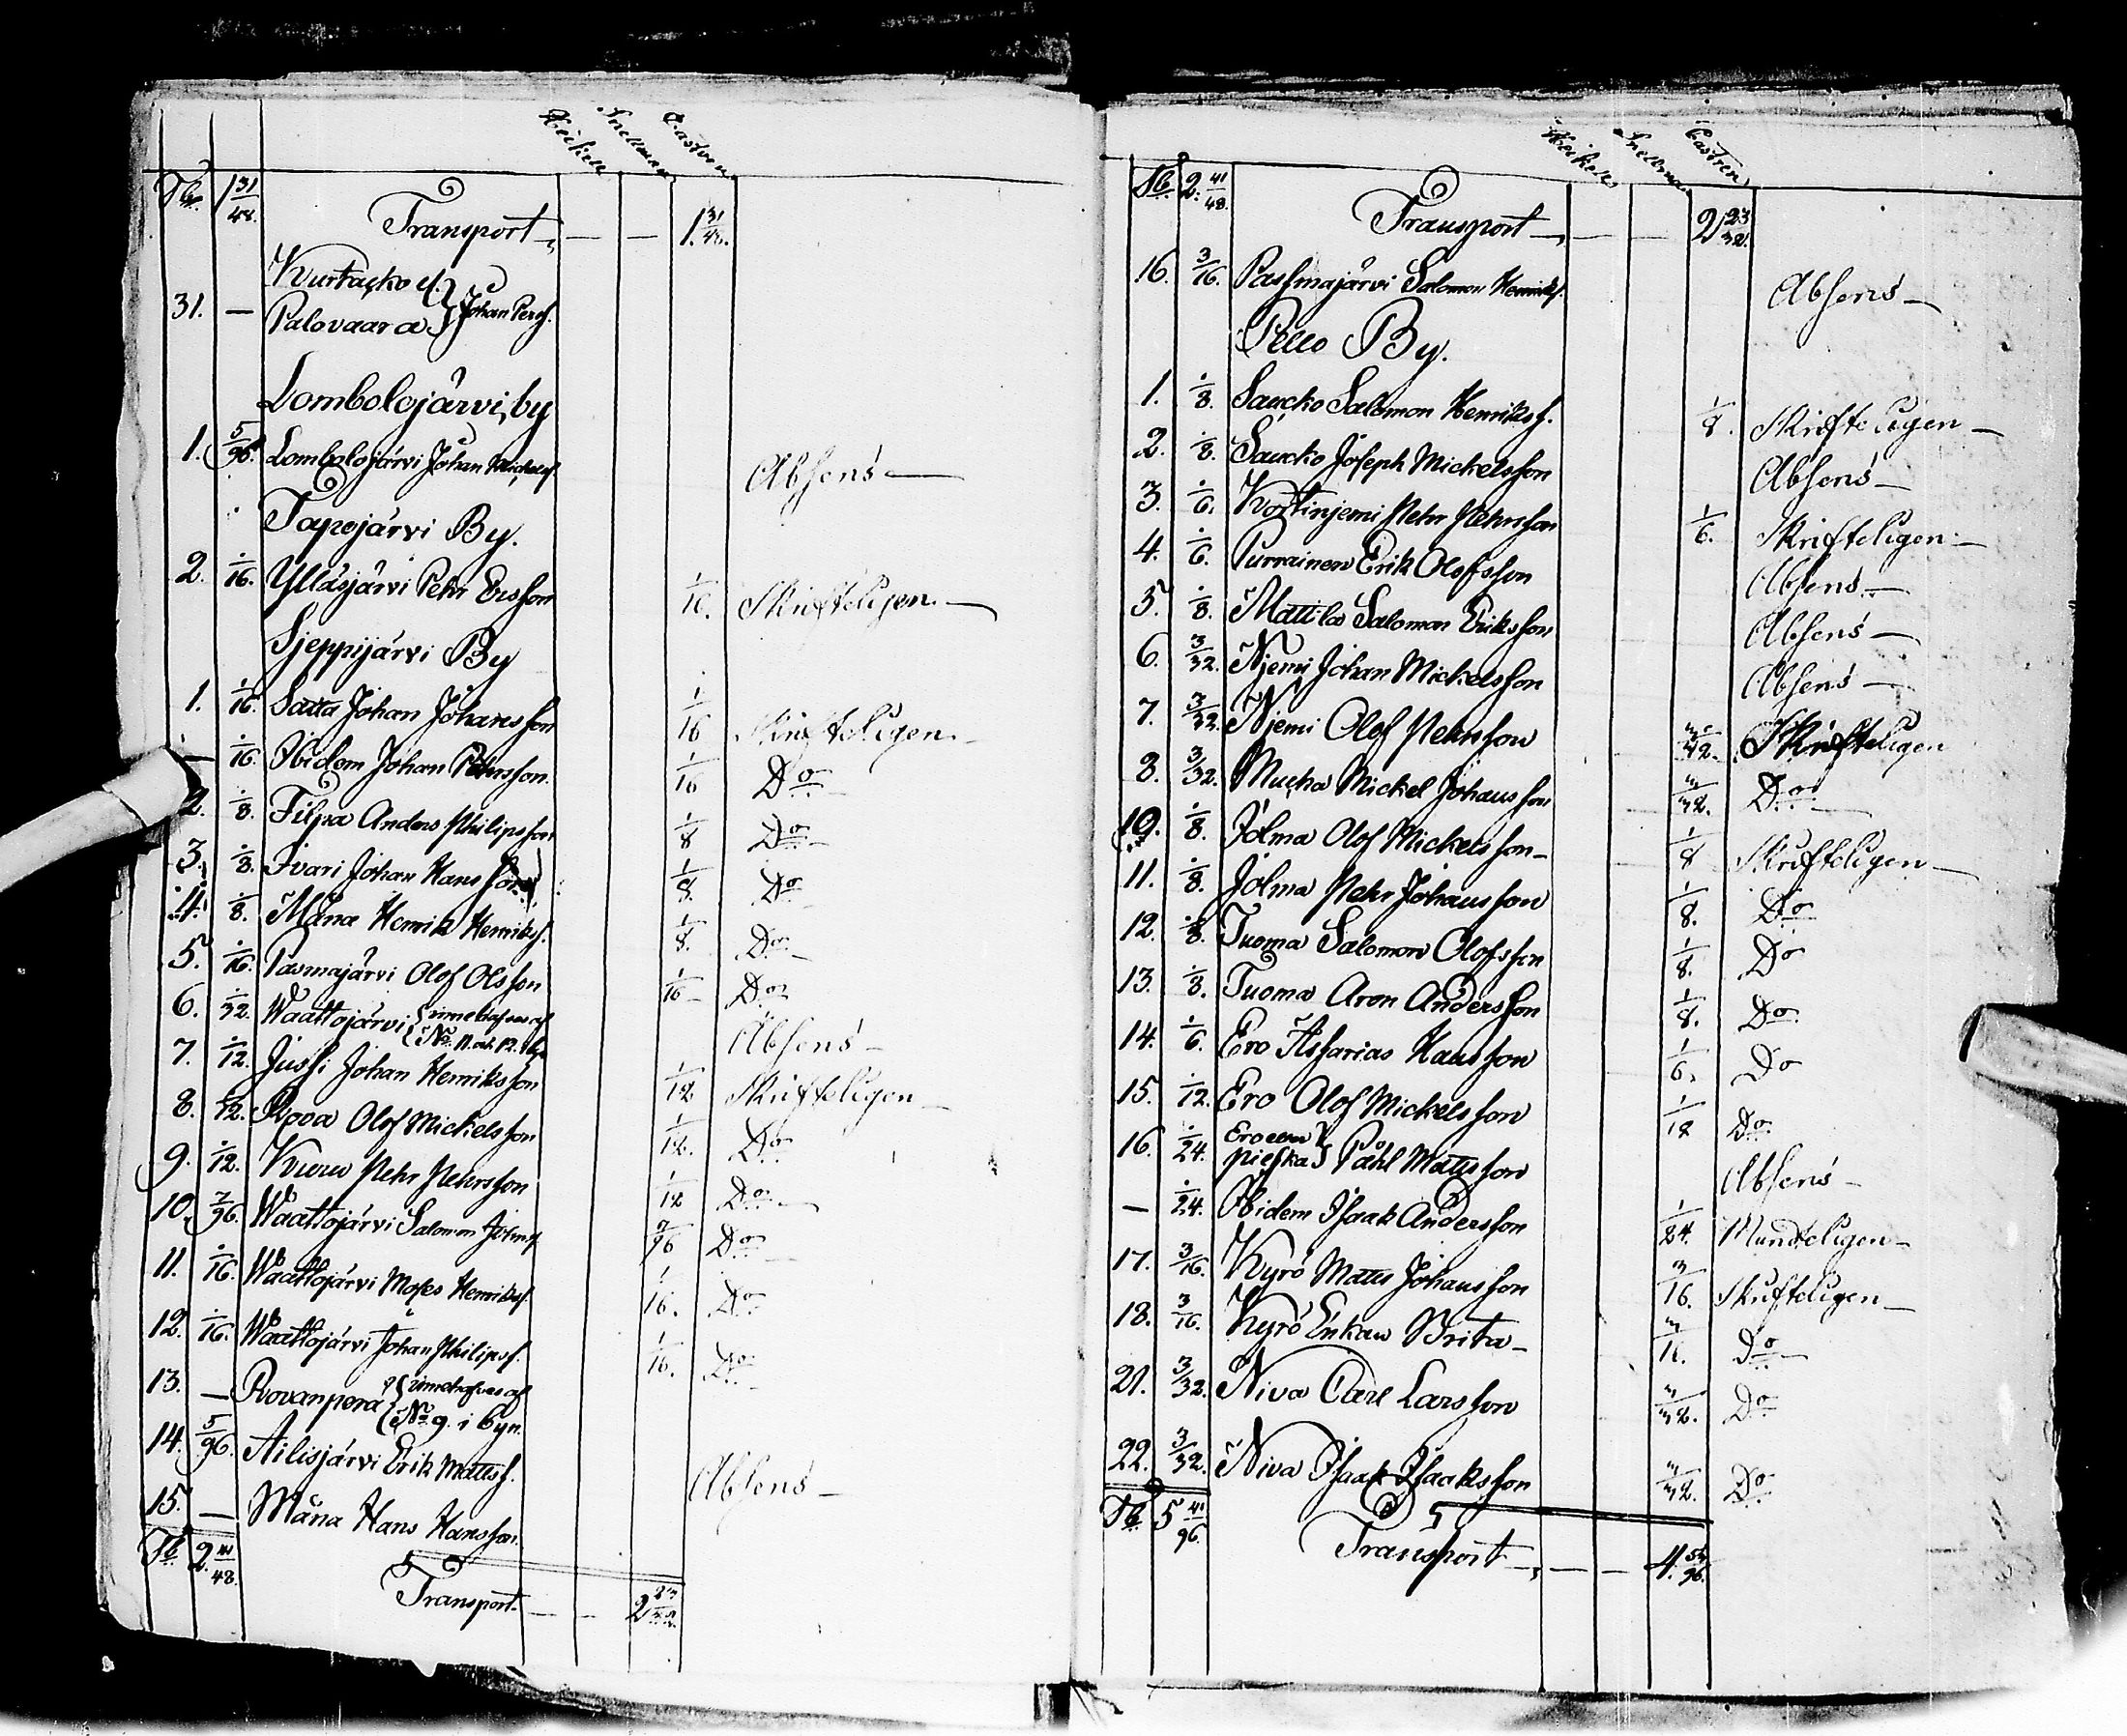 Heikell Snellman Castren
Sb. 1 31/48. Transport, — — 1. 31/48.
Kurtacko el.
31. — Palovaara } Johan Persf.
Lombolojärvi, by
1. 5/96. Lombolojärvi Johan Michelsf. Absens —
Tapojärvi By.
2. 1/16. Ylläsjärvi Pehr Ersson 1/16. Skrifteligen. —
Sjeppijärvi By
1. 1/16. Satta Johan Johansson 1/16 Skrifteligen. —
— 1/16. Ibidem Johan Pehrsson. 1/16 Do
2. 1/8. Filpa Anders Philipsson 1/8 Do
3. 1/8. Ivari Johan Hansson 1/8. Do
4. 1/8. Måna Henrik Henriksf. 1/8. Do —
5. 1/16. Pasmajärvi Olof Olsson 1/16 — Do
6. 1/32. Waattojärvi { innehafves af
No. 11. och 12. i by Absens —
7. 1/12. Jussi Johan Henriksson 1/12 Skrifteligen —
8. 1/12. Rova Olof Mickelsson 1/12. Do
9. 1/12. Kuru Pehr Pehrsson 1/12 Do —
10. 7/96. Waattojärvi Salomon Johansf. 7/96 Do —
11. 1/16. Waattojärvi Moses Henriksf. 1/16. Do
12. 1/16. Waattojärvi Johan Philipsf. 1/16. Do
13. — Rovanpera { innehafves af
No 9. i byn.
14. 5/96. Ailisjärvi Erik Mattsf. Absens —
15. — Måna Hans Hansson.
Sb 2. 41/48. Transport — — 2 23/32.
Heikell Snellman Castren
Sb. 2. 41/48. Transport, — — 2 23/32.
16. 3/16. Passmajärvi Salomon Henriksf. Absens —
Pello By.
1. 1/8. Saucko Salomon Henriksf. 1/8. Skrifteligen —
2. 1/8. Saucko Joseph Mickelsson Absens —
3. 1/6. Kortinjemi Pehr Pehrsson 1/6. Skrifteligen. —
4. 1/6. Purrainen Erik Olofsson Absens. —
5. 1/8. Mattila Salomon Eriksson Absens —
6. 3/32. Njemi Johan Mickelsson Absens —
7. 3/32. Njemi Olof Pehrsson 3/32. Skrifteligen
8. 3/32. Mucha Mickel Johansson 3/32. Do —
10. 1/8. Jolma Olof Mickelsson — 1/8 Skrifteligen —
11. 1/8. Jolma Pehr Johansson 1/8. Do
12. 1/8. Tuoma Salomon Olofsson 1/8. Do
13. 1/8. Tuoma Aron Andersson 1/8. Do
14. 1/6. Ero Assarias Hansson 1/6. Do
15. 1/12. Ero Olof Mickelsson 1/12 Do
16. 1/24. Ero
pieska } Påhl Mattsson Absens —
— 1/24. Ibidem Isaak Andersson 1/24. Mundteligen —
17. 3/16. Kyrö Matts Johansson 3/16. Skrifteligen —
18. 3/16. Kyrö Enkan Brita — 3/16. Do —
21. 3/32. Niva Carl Larsson 3/32. Do
22. 3/32. Niva Isaak Isaksson 3/32. Do
Sb 5 41/96. Transport, — — 4. 55/96.